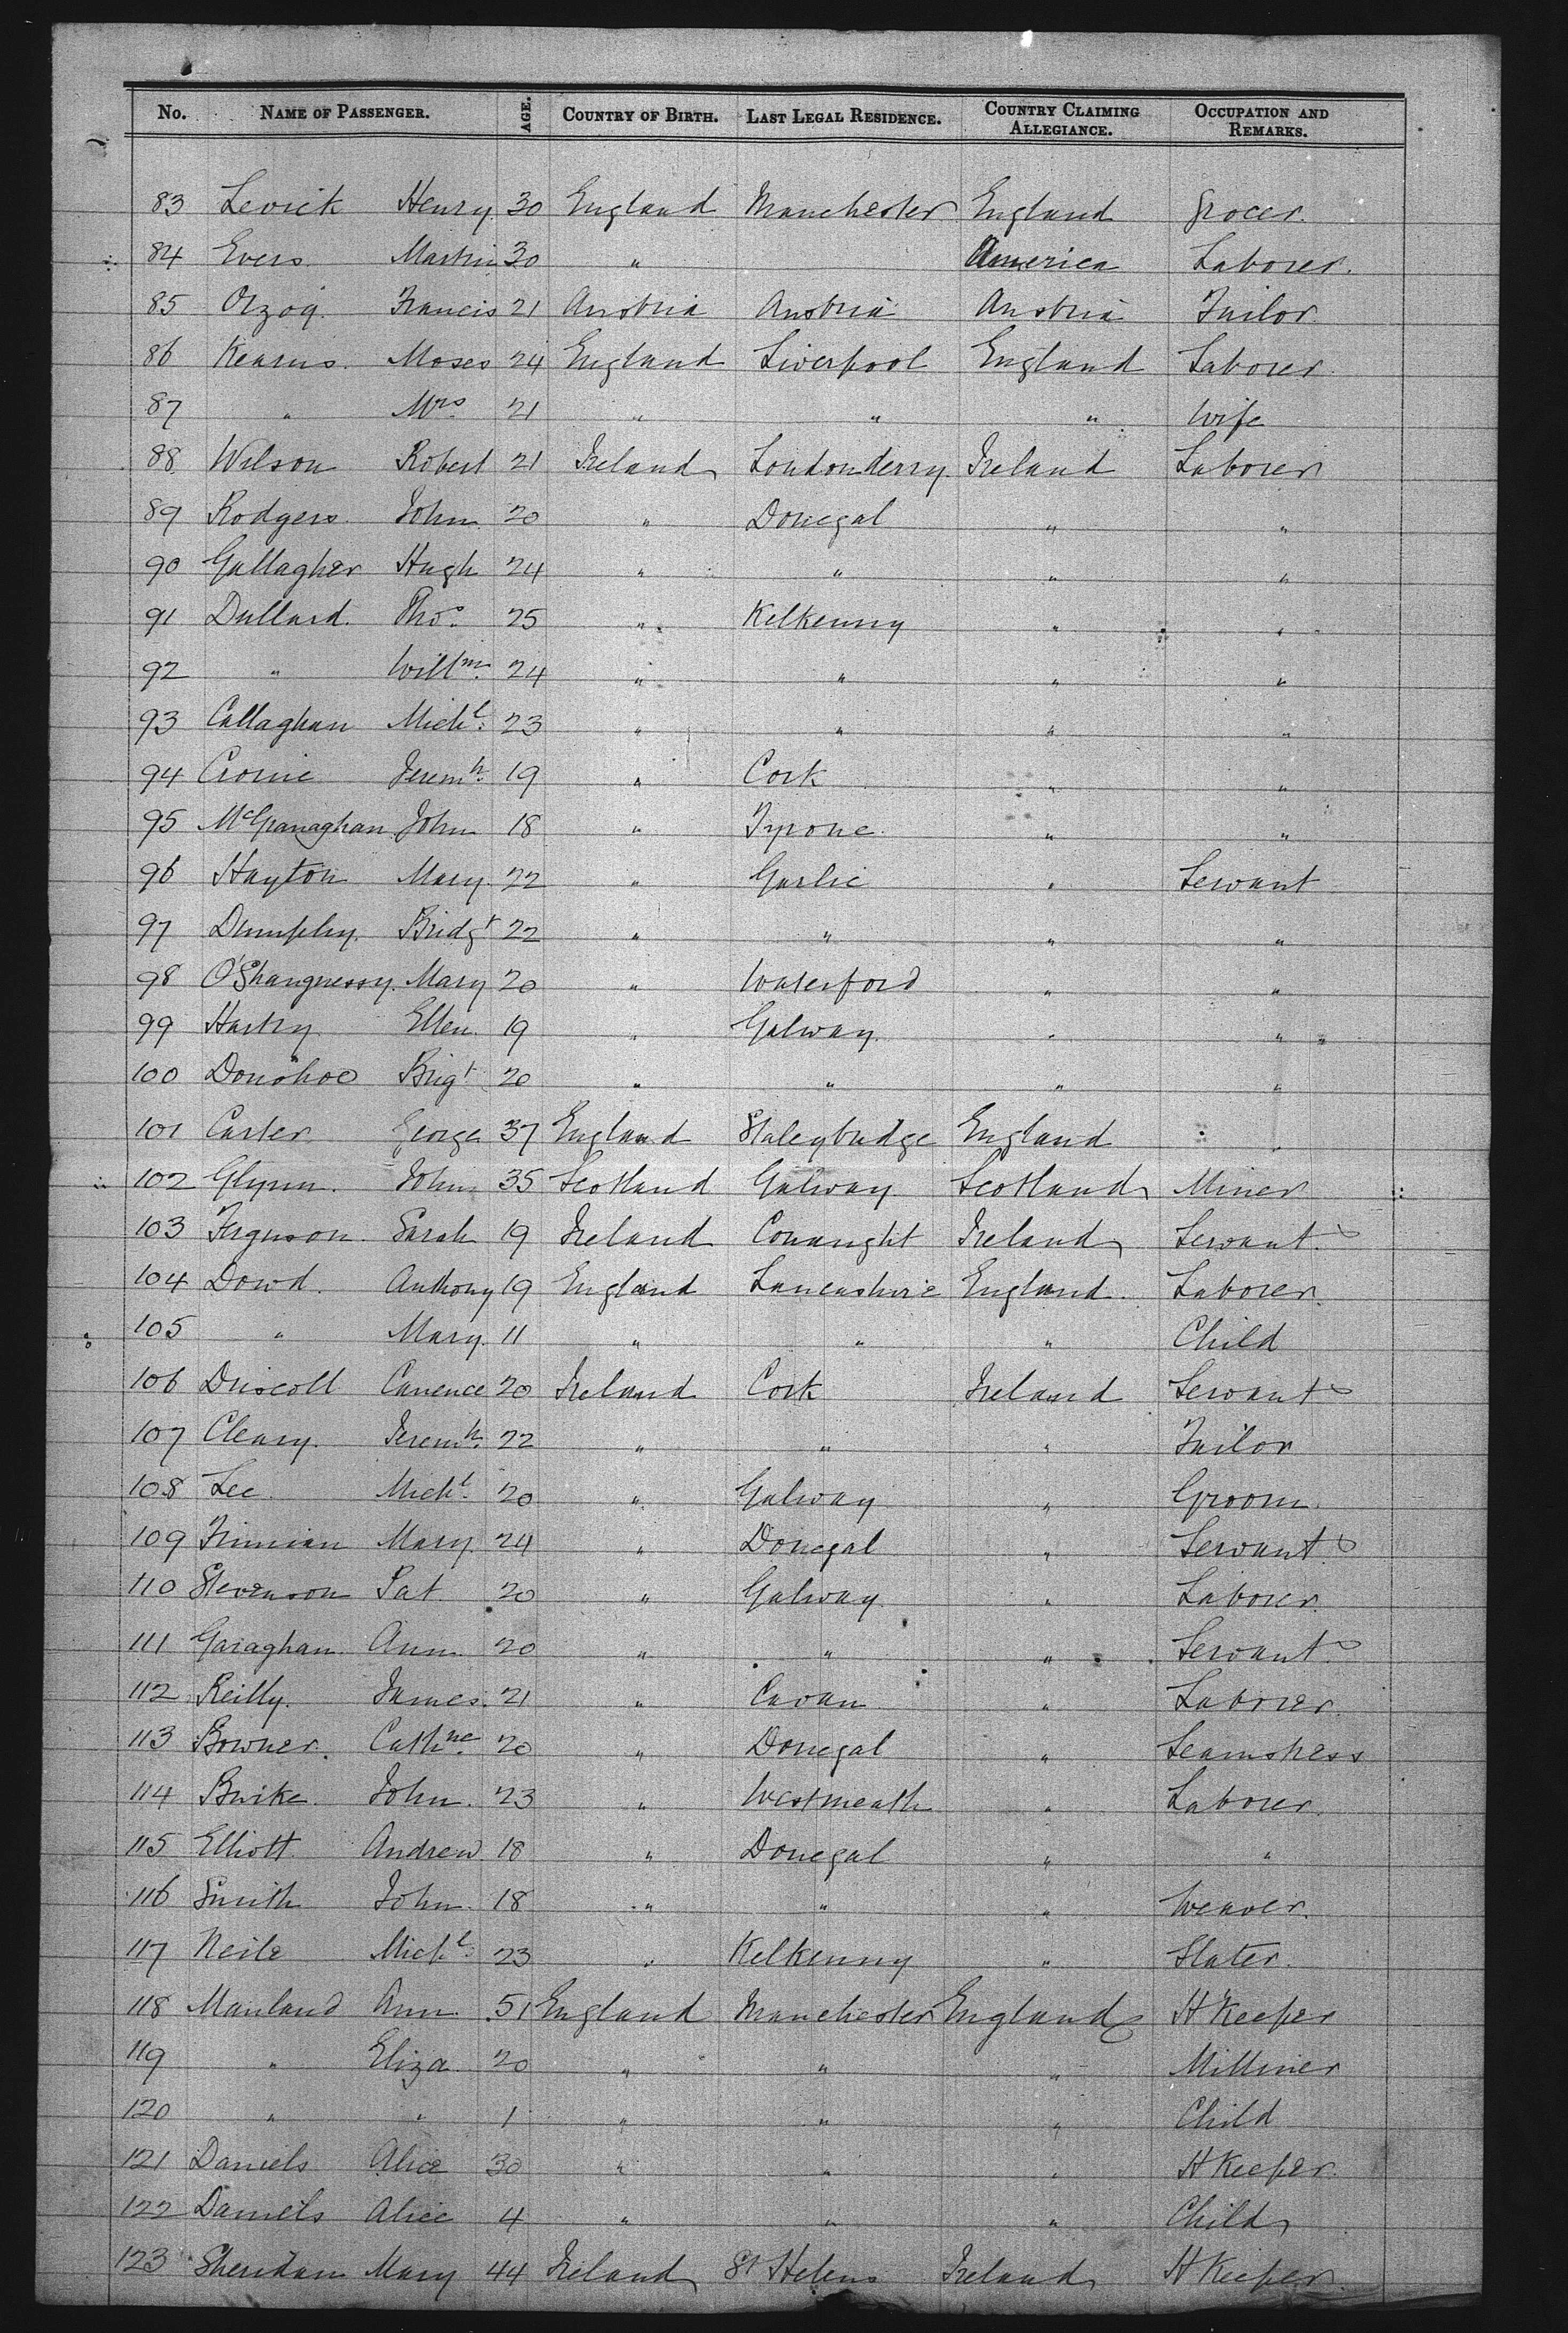 No. NAME OF PASSENGER. AGE. COUNTRY OF BIRTH. LAST LEGAL RESIDENCE. COUNTRY CLAIMING ALLEGIANCE. OCCUPATION AND REMARKS.
83 Levick Henry 30 England Manchester England Grocer.
84 Evers Martin 30 " America Laborer.
85 Orzog Francis 21 Austria Austria Austria Tailor
86 Kearns. Moses 24 England Liverpool England Laborer
87 " Mrs 21 " " " Wife
88 Wilson Robert 21 Ireland Londonderry Ireland Laborer
89 Rodgers John 20 " Donegal " "
90 Gallagher Hugh 24 " " " "
91 Dullard. Thos. 25 " Kelkenny " "
92 " Willm. 24 " " " "
93 Callaghan Michl. 23 " " " "
94 Cronie Jeremh. 19 " Cork " "
95 McGranaghan John 18 " Tyrone " "
96 Hayton Mary 22 " Garlic " Servant
97 Dumphy. Bridgt 22 " " " "
98 O'Shangnessy. Mary 20 " Waterford " "
99 Hastry Ellen 19 " Galway. " "
100 Donohoe Brigt 20 " " " "
101 Carter George 37 England Staleybridge England "
102 Glynn. John 35 Scotland Galway Scotland Miner
103 Ferguson Sarah 19 Ireland Conaught Ireland Servant.
104 Dowd. Anthony 19 England Lancashire England. Laborer.
105 " Mary. 11 " " " Child
106 Driscoll 20 Ireland Cork Ireland Servant
107 Cleary. Jeremh. 22 " " " Tailor
108 Lee Michl. 20 " Galway " Groom.
109 Finnian Mary 24 " Donegal " Servant.
110 Stevenson Pat. 20 " Galway " Laborer.
111 Garaghan. Ann 20 " " " Servant.
112 Reilly. James. 21 " Cavan " Laborer.
113 Bowner. Cathne. 20 " Donegal " Seamstress
114 Burke. John. 23 " Westmeath " Laborer.
115 Elliott Andrew 18 " Donegal " "
116 Smith John. 18 " " " Weaver.
117 Neile Michl. 23 " Kelkenny " Slater.
118 Manland Ann. 51 England Manchester England H Keeper
119 " Eliza 20 " " " Milliner
120 " " 1 " " " Child
121 Daniels Alice 30 " " " H Keeper.
122 Daniels Alice 4 " " " Child
123 Sheridan Mary 44 Ireland St Helens Ireland H Keeper.